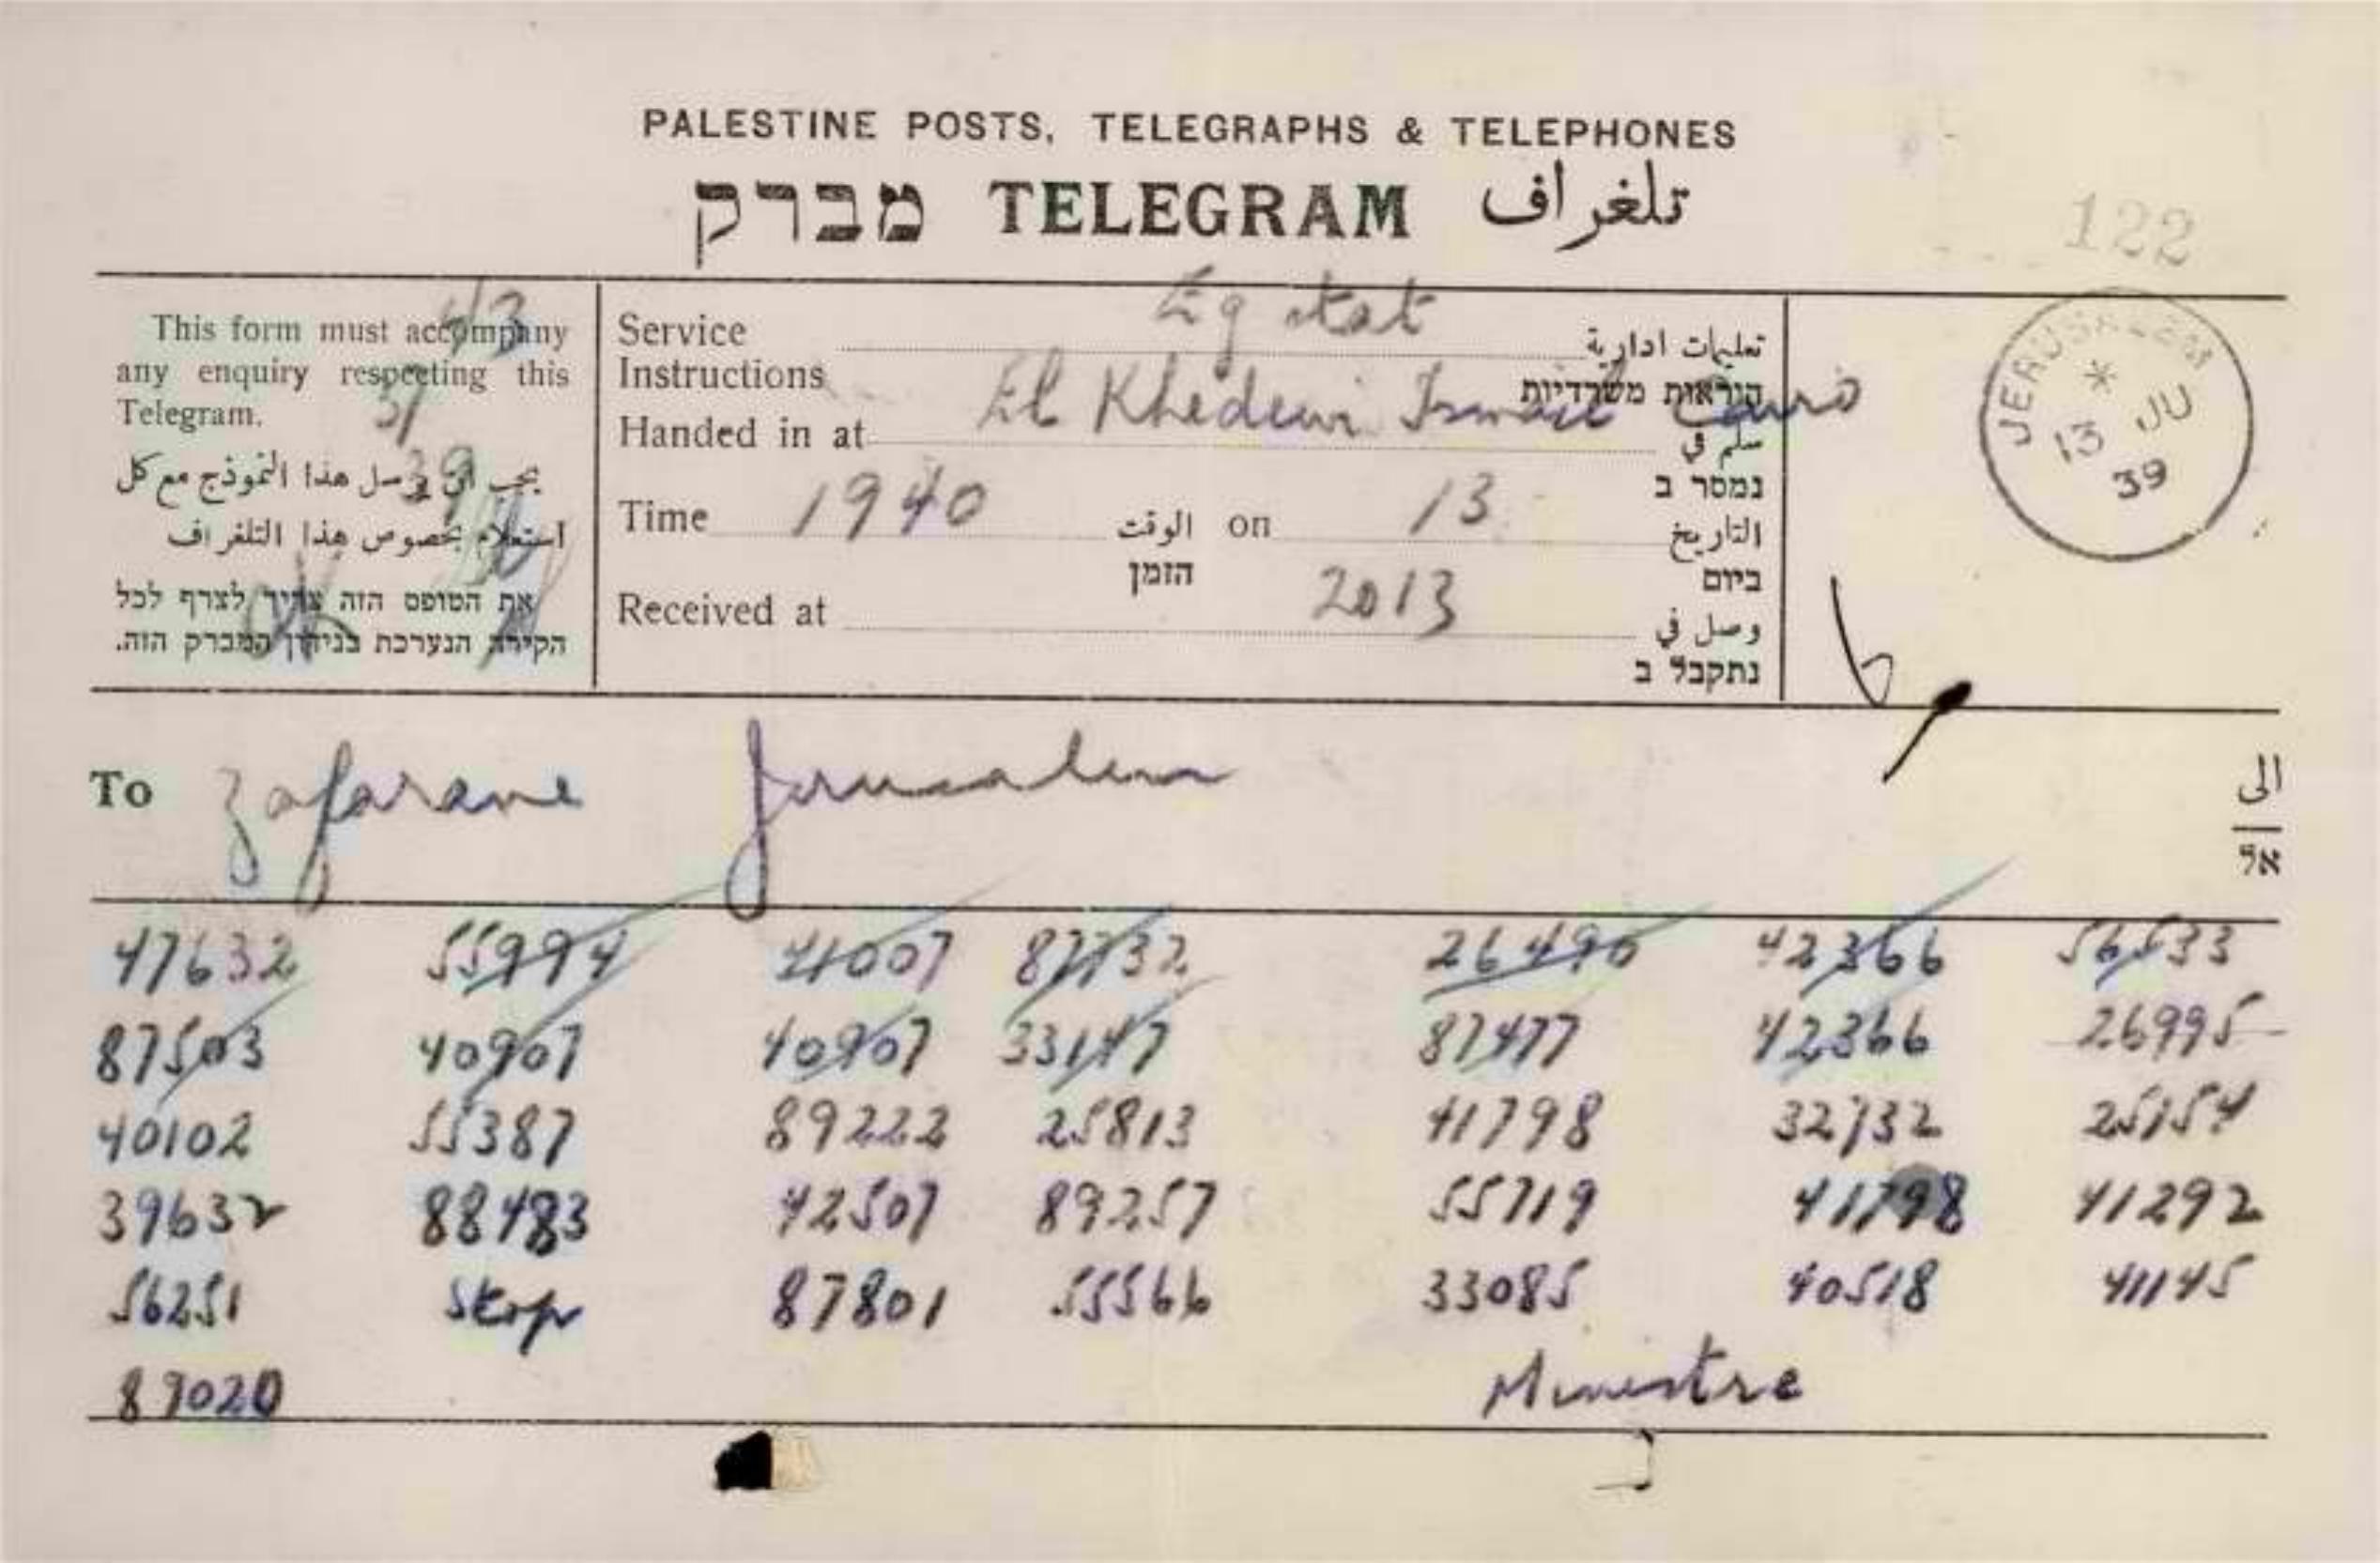 PALESTINE POSTS, TELEGRAPHS & TELEPHONES
מברק TELEGRAM تلغراف
122
This form must accompany
any enquiry respecting this
Telegram.
يجب ان يرسل هذا النموذج مع كل
استعلام بخصوص هذا التلغراف
את הטופס הזה צריך לצרף לכל
הקירה הנערכת בנידון המברק הזה.
43
31
39
Service Eg stat تعليمات ادارية
Instructions הוראות משרדיות
Handed in at El Khedewi Ismail Cairo سلم في
נמסר ב
Time 1940 الوقت on 13 التاريخ
הזמן ביום
Received at 2013 وصل في
נתקבל ב
JERUSALEM
13 JU
39
To Zafarane Jerusalem الى
אל
47632 55994 41007 87732 26490 42366 56533
87503 40907 40907 33147 87477 42366 26995
40102 55387 89222 25813 41798 32732 25154
39632 88483 42507 89257 55719 41798 41292
56251 Stop 87801 55566 33085 40518 41145
89020 Ministre